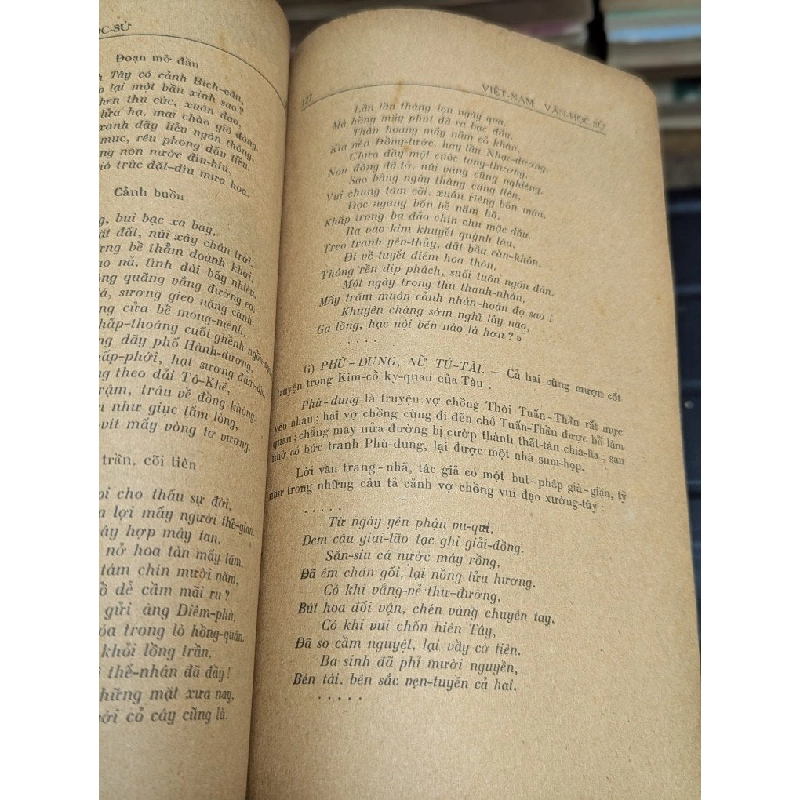 ỌC-SỬ
Đoạn mở đầu
Tây có cảnh Bích-câu,
lại một bàn xinh sao?
thu cúc, xuân đào,
lửa hạ, mai chào gió đông.
tranh dãy liễn ngôn thông,
mục, rêu phong dấu tiền.
non nước đìu-hiu,
trúc dắt-dìu mưa hoa.
Cảnh buồn
bụi bạc xa bay,
đất dải, núi xây chân trời.
bề thẳm doành khơi
nã, tình dài bấy nhiêu.
quãng vắng đường cỏ
sương gieo nặng cành
cửa bể mông-mênh,
thấp-thoáng cuối ghềnh
dãy phố Hành-dương,
phấp-phới, hai sương
theo dải Tô-Khê,
rậm, trâu về đồng không.
như giục tấm lòng,
vít mấy vòng tơ vương.
trần, cõi tiên
cho thấu sự đời,
lợi mấy người thế-gian.
hợp mây tan,
nở hoa tàn mấy lăm.
tám chín mười năm,
dễ cầm mãi ru?
gửi áng Diêm-phù,
hóa trong lò hồng-quân.
khỏi lồng trần,
thế-nhân đã đầy!
những mặt xưa nay,
với cỏ cây cũng là
127 VIỆT-NAM VĂN-HỌC SỬ
Lần lần tháng lọn ngày qua,
Má hồng mấy phút đã ra bạc đầu.
Thần hoang mấy nấm cổ khâu,
Kìa nền Đồng-tước, hay lầu Nhạc-dương.
Chưa đầy một cuộc tang-thương,
Non đồng đã lở, núi vàng cũng nghiêng.
Sao bằng ngày tháng cung tiên,
Vui chung tám cõi, xuân riêng bốn mùa.
Dọc ngang bốn bể năm hồ,
Khắp trong ba đảo chín chu mặc dầu.
Ra vào kim khuyết quỳnh lâu,
Treo tranh yên-thủy, dắt bầu càn-khôn.
Đi về tuyết điểm hoa thôn,
Thông rền dịp phách, suối tuôn ngón đàn.
Một ngày trong thú thanh-nhàn,
Mấy trăm muôn cảnh nhân-hoàn đọ sao!
Khuyên chàng sớm nghĩ lấy nao,
Ga lòng, hạc nội bên nào là hơn?»
. . . . .
6) PHÙ-DUNG, NỮ TÚ-TÀI. — Cả hai cũng mượn cốt
truyện trong Kim-cổ kỳ-quan của Tàu:
Phù-dung là truyện vợ chồng Thôi Tuấn-Thần rất mực
yêu nhau; hai vợ chồng cùng đi đến chỗ Tuấn-Thần được bổ làm
quan; chẳng may nửa đường bị cướp thành thất-tán chia-lìa, sau
nhờ có bức tranh Phù-dung, lại được một nhà sum-họp.
Lời văn trang-nhã, tác giả có một bút-pháp già-giặn, tỷ
như trong những câu tả cảnh vợ chồng vui đạo xướng-tùy:
. . . . .
Từ ngày yên phận vu-qui,
Đem câu giai-lão tạc ghi giải-đồng.
Săn-síu cá nước mây rồng,
Đã êm chăn gối, lại nồng lửa hương.
Có khi vắng-vẻ thư-đường,
Bút hoa đối vận, chén vàng chuyền tay.
Có khi vui chốn hiên Tây,
Đã so cầm nguyệt, lại vầy cờ tiên.
Ba sinh đã phỉ mười nguyền,
Bên tài, bên sắc vẹn-tuyền cả hai.
. . . . .